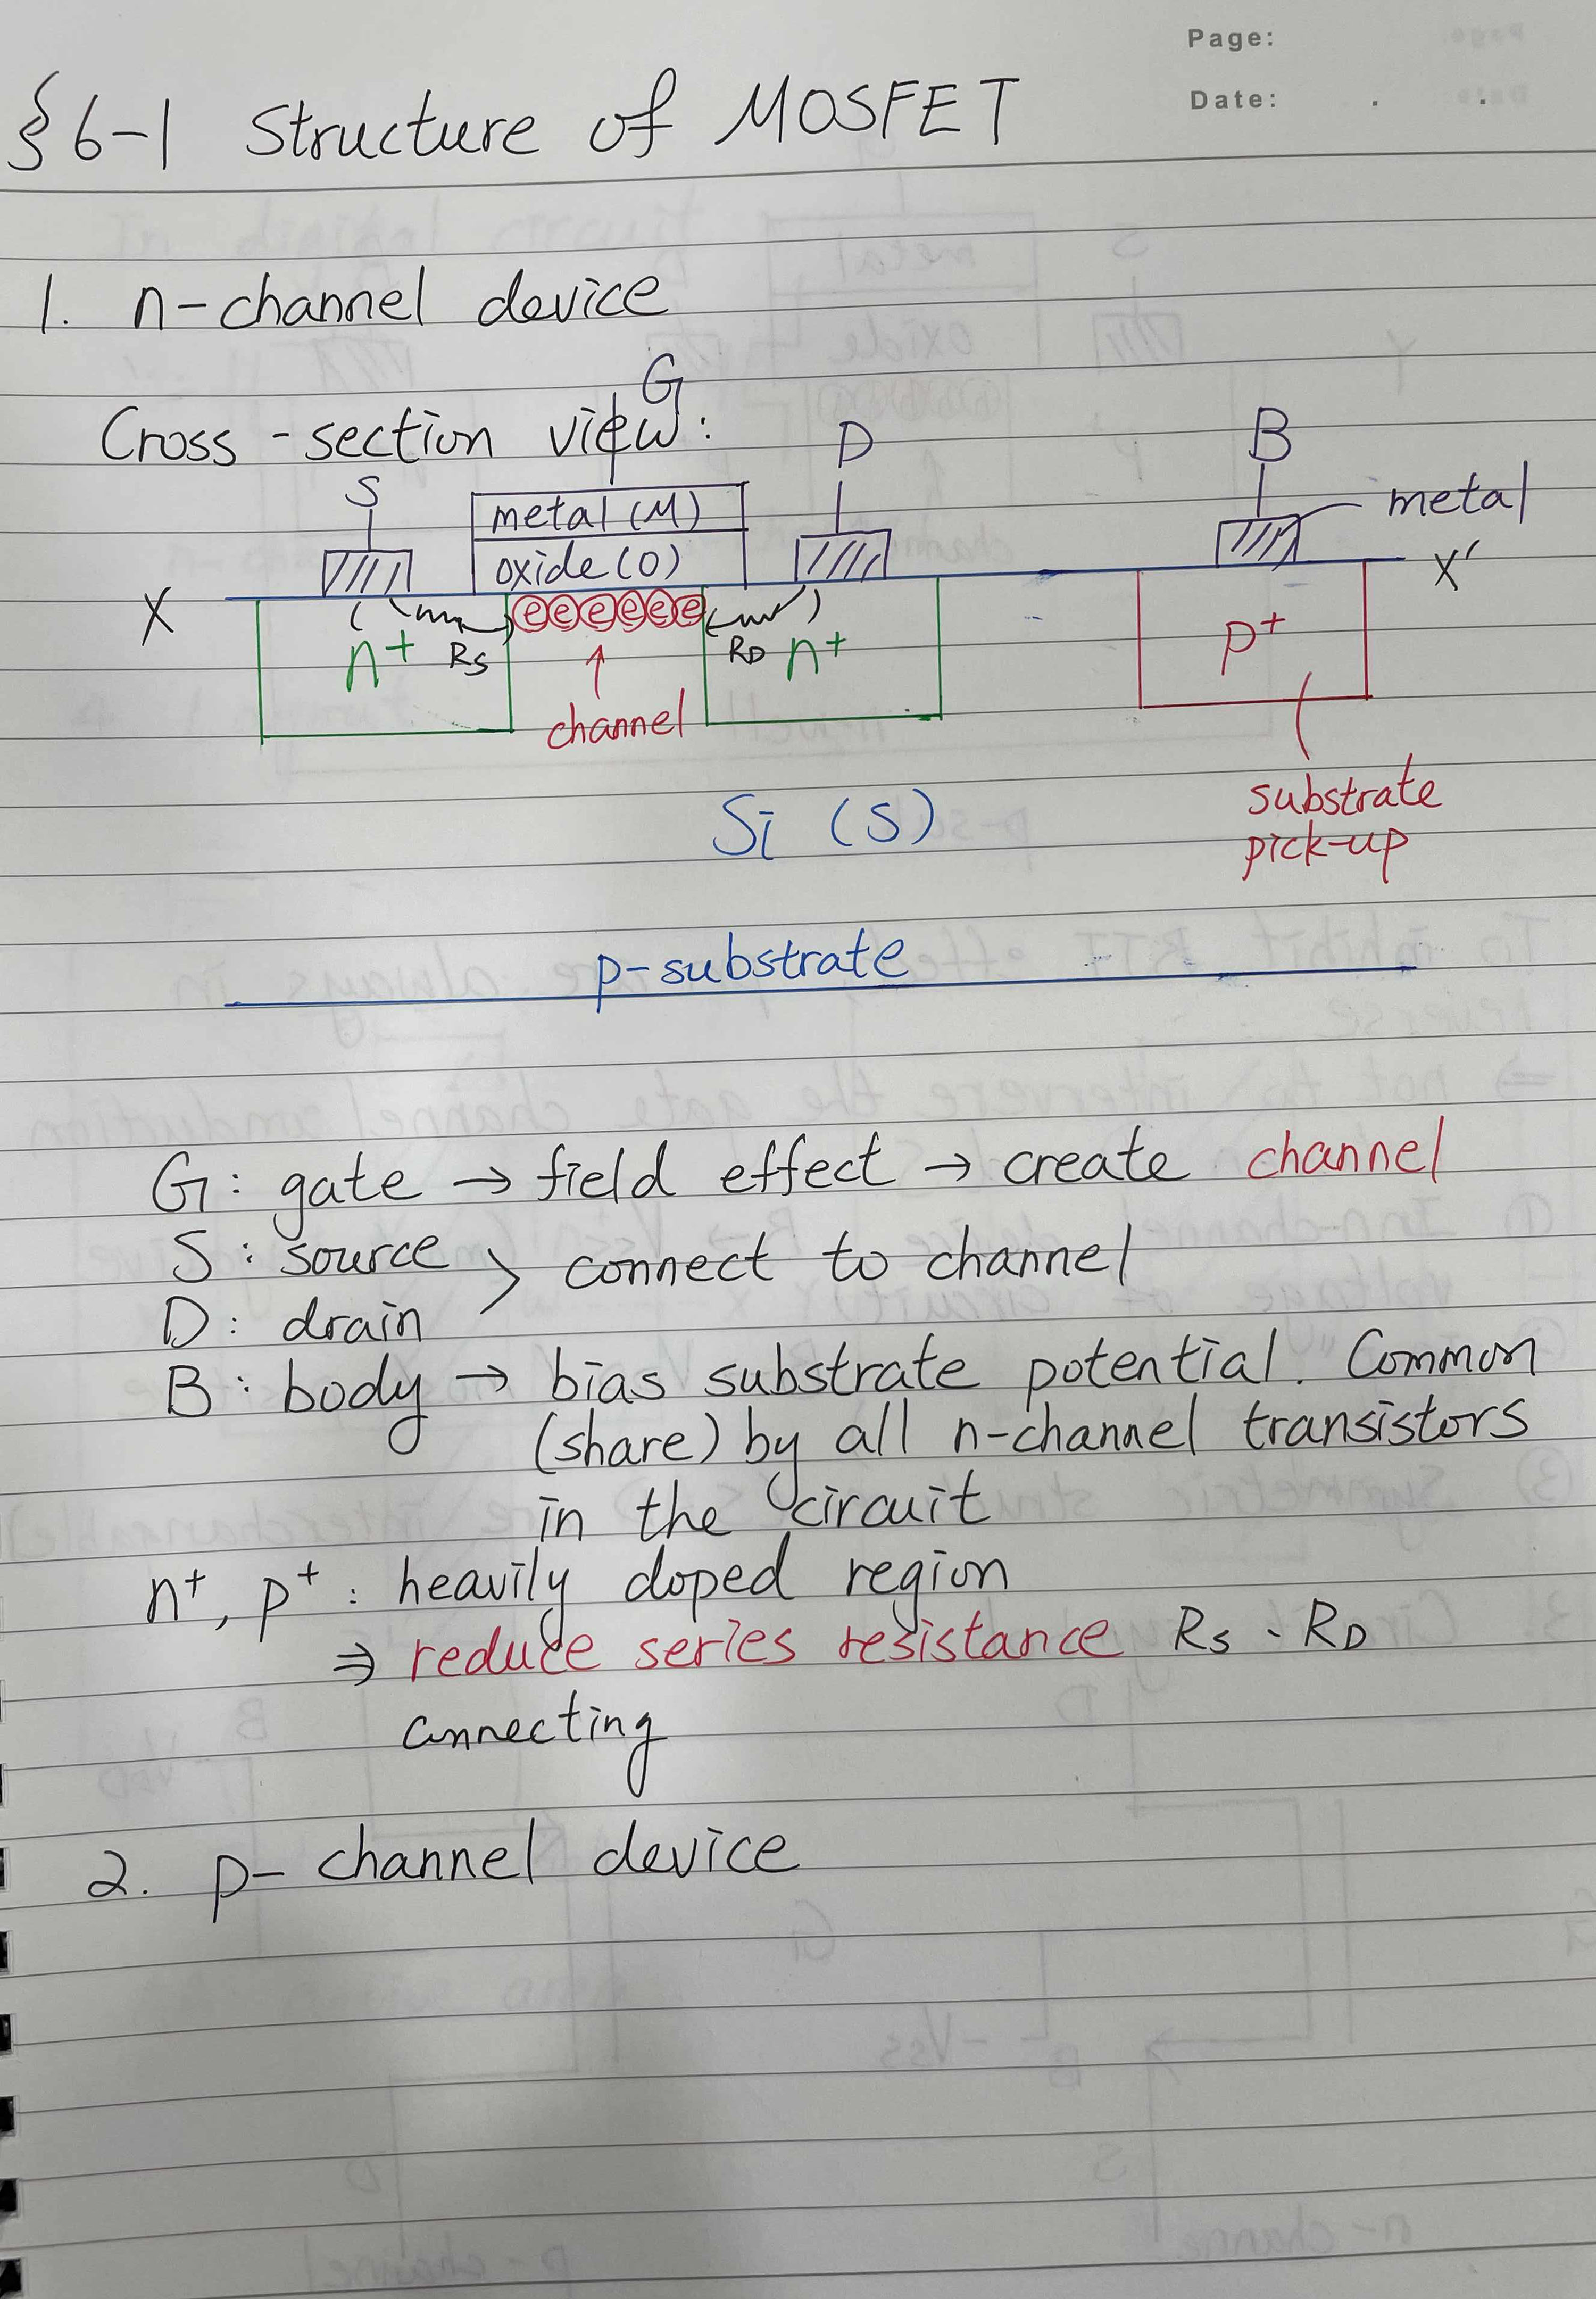 Page:
Date: . .
§6-1 Structure of MOSFET
1. n-channel device
Cross-section view:
G
S
D
B
metal (M)
metal
oxide (O)
X
X'
eeeeee
n+
Rs
RD
n+
p+
channel
substrate
pick-up
Si (S)
p-substrate
G: gate → field effect → create channel
S: source > connect to channel
D: drain
B: body → bias substrate potential. Common
(share) by all n-channel transistors
in the circuit
n+, p+: heavily doped region
⇒ reduce series resistance Rs、RD
connecting
2. p-channel device